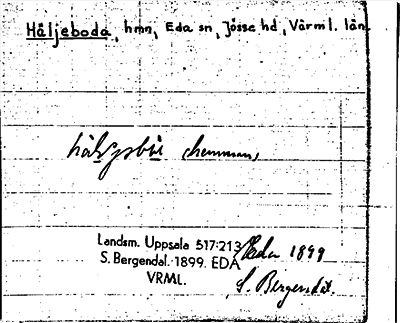 Håljeboda, hmn, Eda sn, Jösse hd, Värml. län
hemman,
Landsm. Uppsala 517:213
S. Bergendal. 1899. EDA
VRML.
Eda 1899
S. Bergendal.